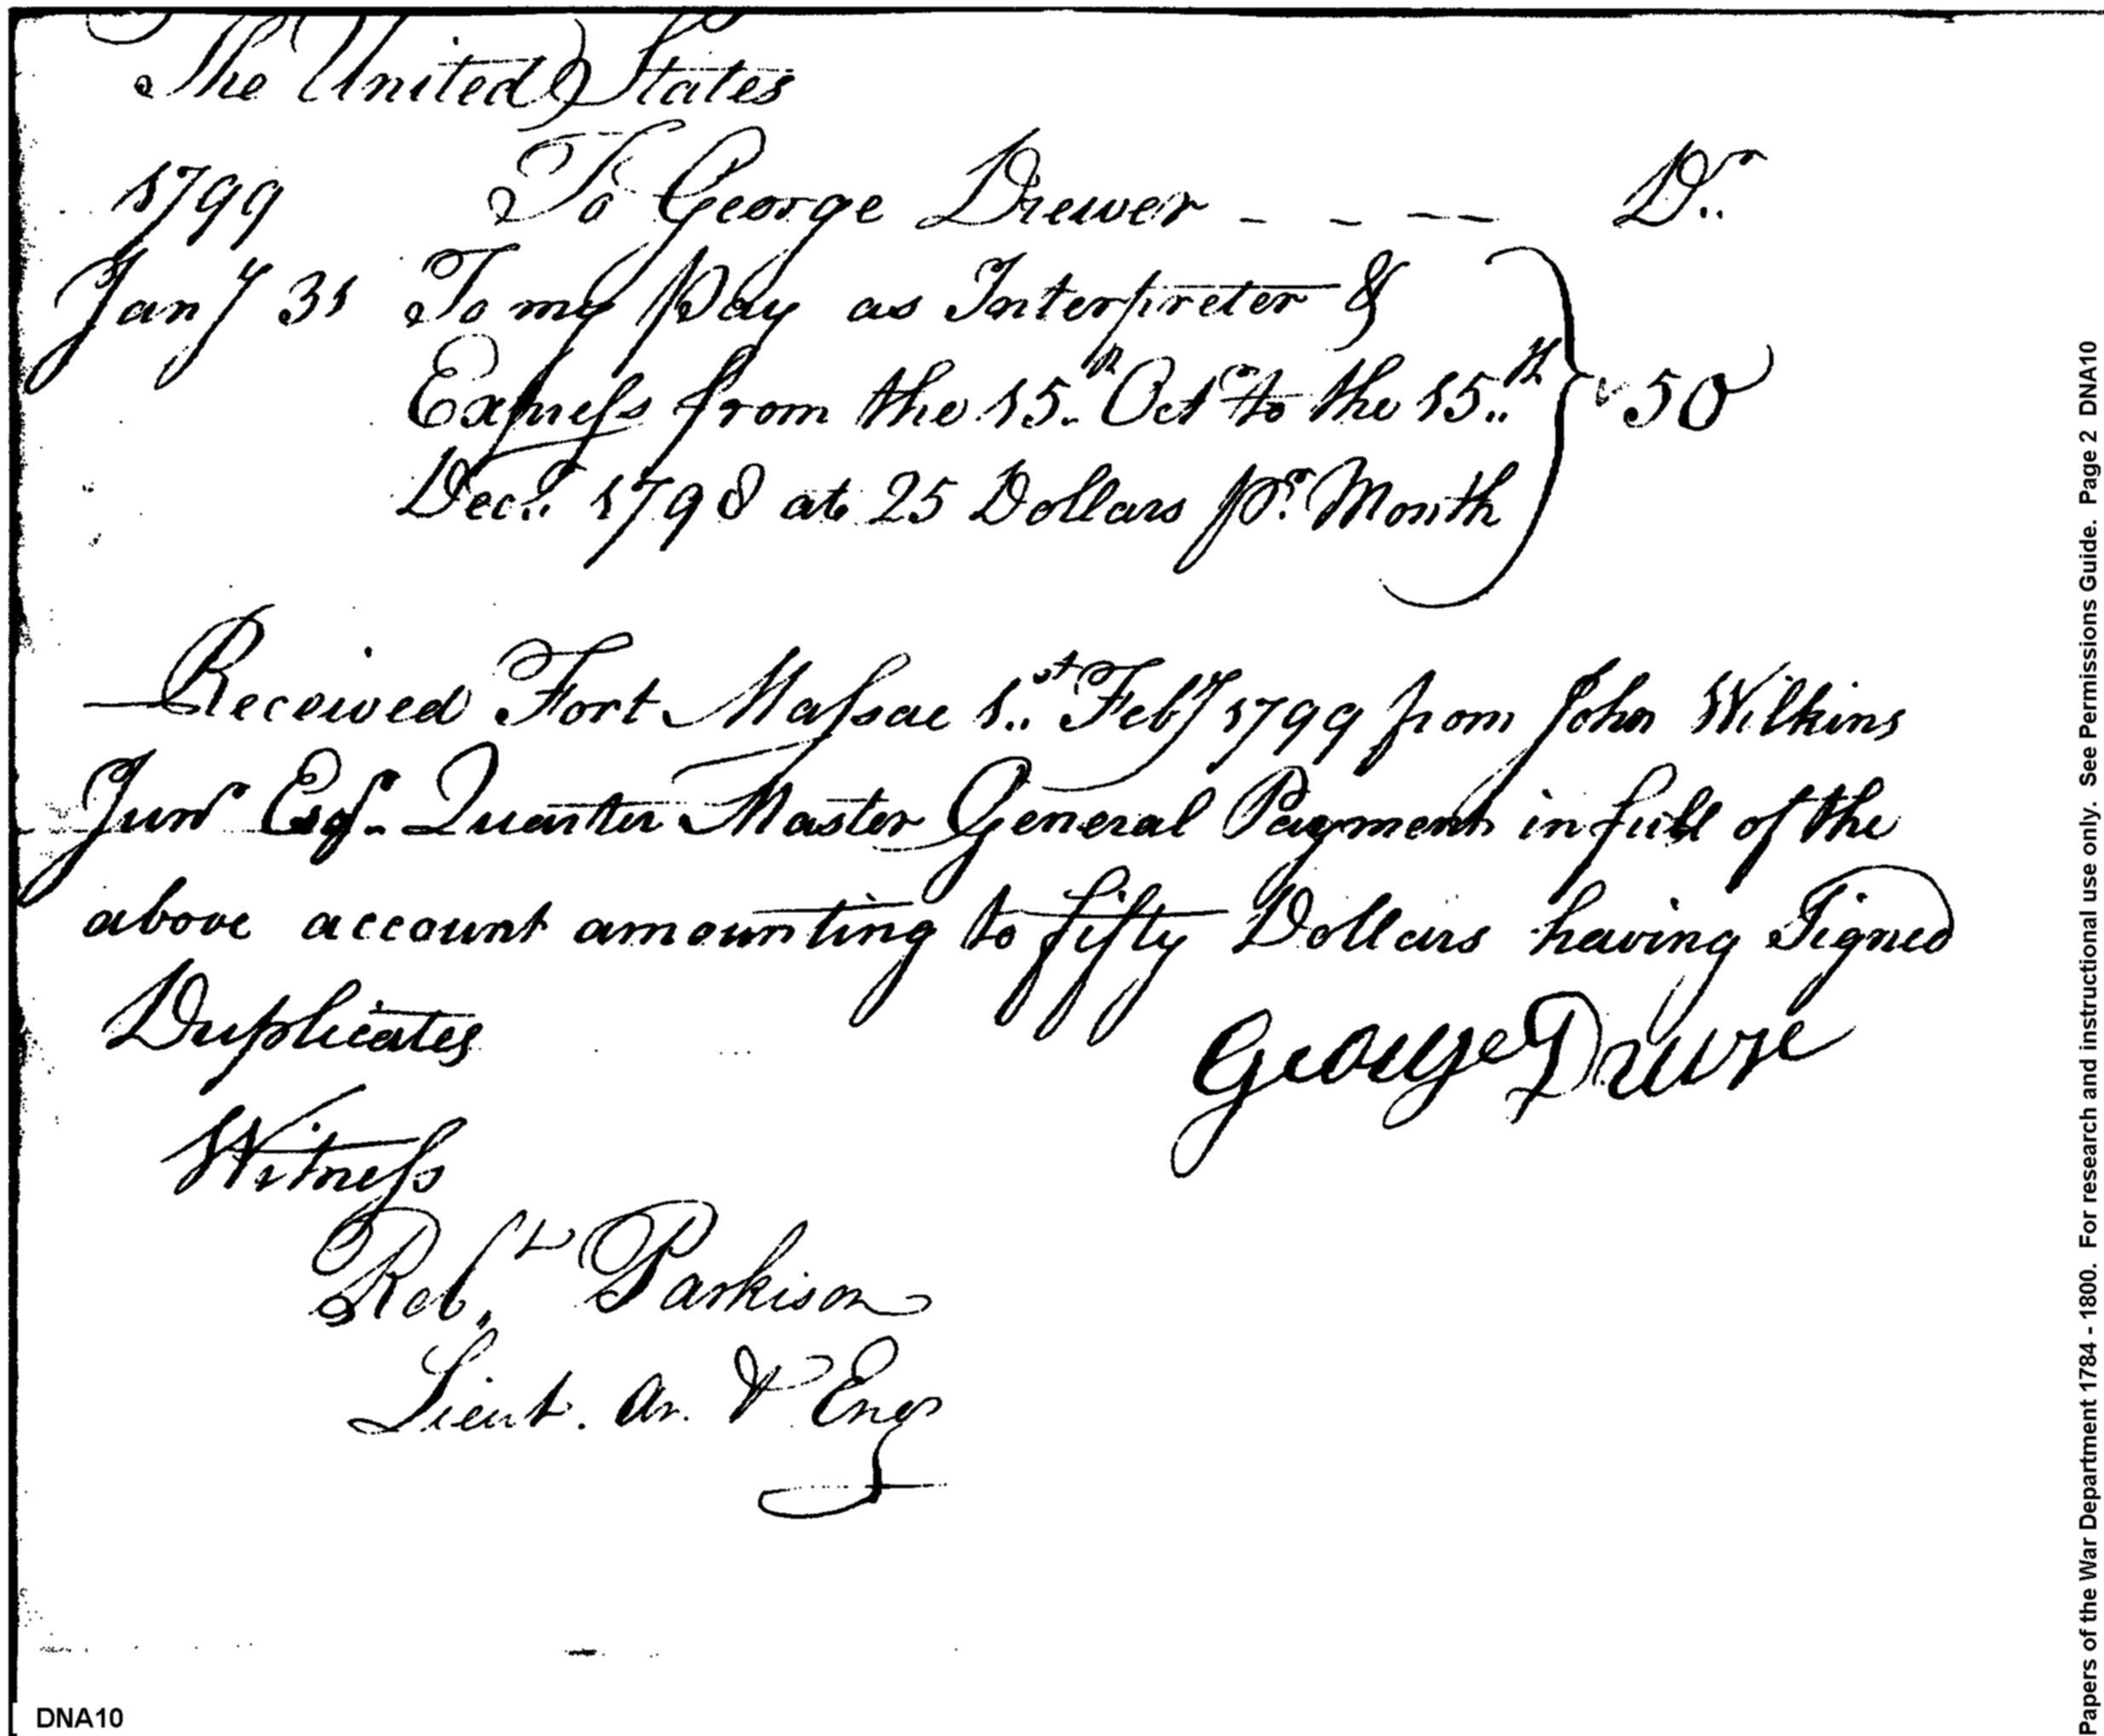 The United States
1799 To George Drewer - - - - Dr..
Jany 31 To my Pay as Interpreter &
Express from the 15th Octr to the 15th
Decr 1798 at 25 Dollars pr. Month
50
Received Fort Massac 1st Feby 1799 from John Wilkins
Junr Esqr. Quarter Master General Payment in full of the
above account amounting to fifty Dollars having Signed
Duplicates
George Drure
Witness
Robt. Parkison
Lieut. Ar. & Engs
DNA10
Papers of the War Department 1784 - 1800. For research and instructional use only. See Permissions Guide. Page 2 DNA10